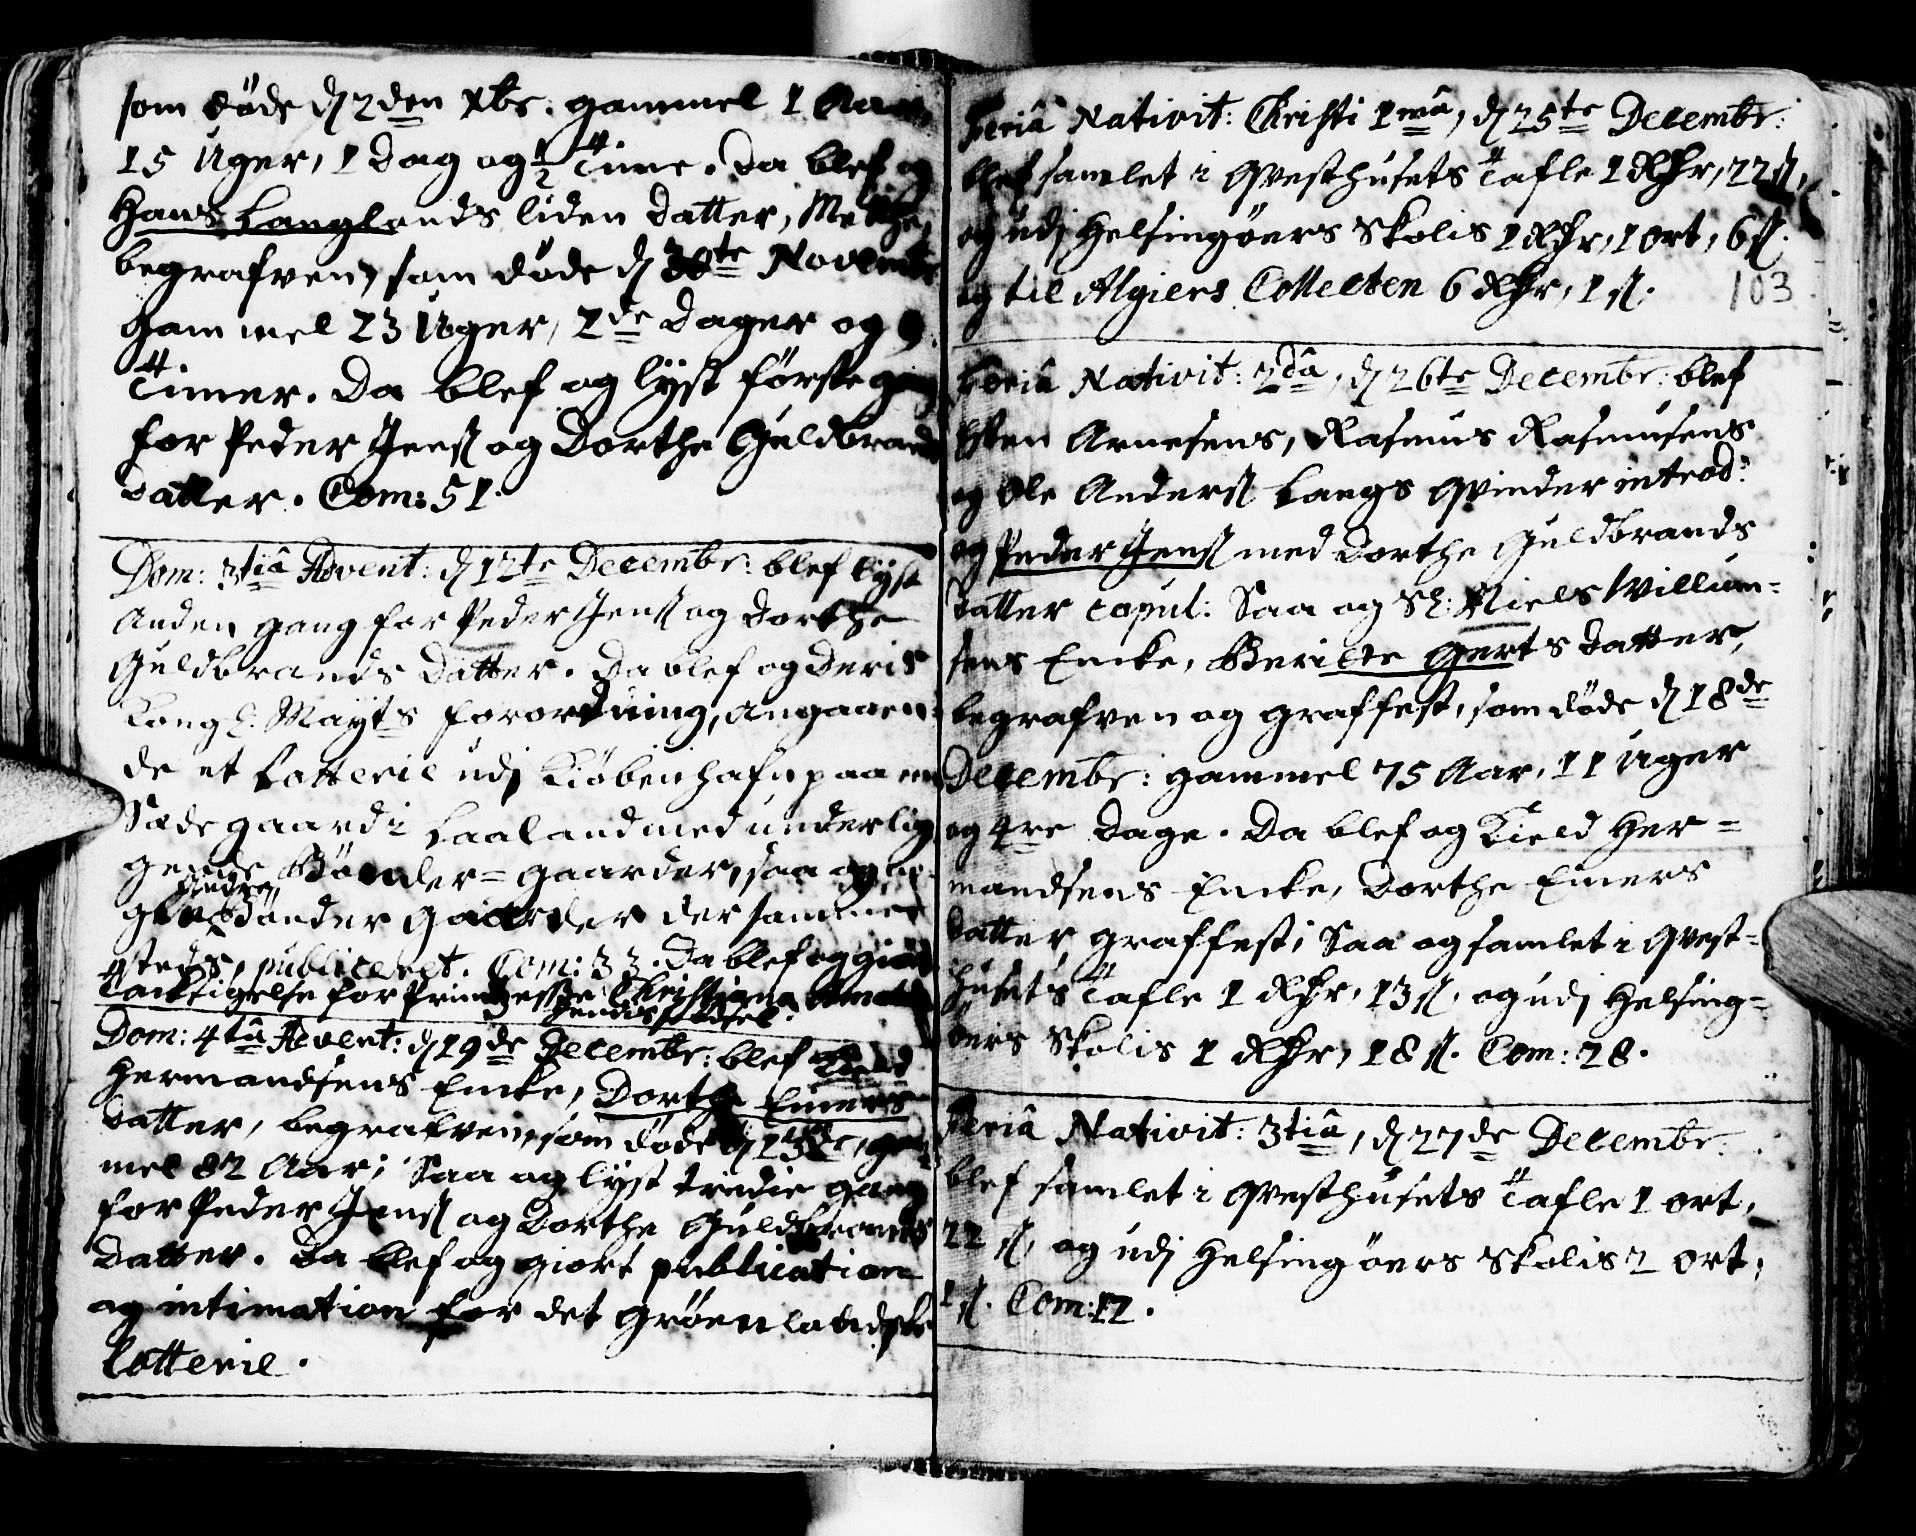 som døde d 2den Xbr. gammel 1 Aar,
15 Uger, 1 Dag og 1/2 Time. Da blef og
Hans Langlands liden Datter, Methe,
begrafven, som døde d 30te Novembr
gammel 23 Uger, 2de Dager og 9
Timer. Da blef og lyst første gang
for Peder Jens: og Dorthe Guldbrands
Datter. Com: 51.
Dom: 3tiâ Advent: d 12te Decembr: blef lyst
Anden gang for Peder Jens: og Dorthe
Guldbrands Datter. Da blef og Deris
Kongl: Mayts forordning, angaaen-
de et Lotterie udj Kiøbenhafn paa en
Sædegaard i Laaland med underlig
gende Bønder-gaarder, saa og
Andre Bønder Gaarder der samme-
steds, publiceret. Com: 33. Da blef og giort
Tacksigelse for Printzesse Christiana Amalia
hendis fødsel.
Dom: 4tâ Advent: d 19de Decembr: blef Kield
Hermandsens Encke, Dorthe Einers
Datter, begrafven, som døde d, gam
mel 82 Aar; Saa og lyst tredie gang
for Peder Jens: og Dorthe Guldbrands
Datter. Da blef og giort publication
og intimation for det grøenlandske
Lotterie.
Feriâ Nativit: Christi 1mâ, d 25te Decembr:
blef samlet i Qvesthusets Tafle 1 Rdr, 22 s,
og udj Helsingøers Skolis 1 Rdr, 1 ort, 6 s.
og til Algiers Collecten 6 Rdr, 1 s.
103
Feriâ Nativit: 2dâ, d 26te Decembr: blef
Esten Arnesens, Rasmus Rasmusens
og Ole Anders: Langs Qvinder introd:
og Peder Jens: med Dorthe Guldbrands
Datter copul: Saa og Sl: Niels Willum-
sens Encke, Berilte Gerts Datter,
begrafven og graffest, som døde d 18de
Decembr: gammel 75 Aar, 11 Uger
og 4re Dage. Da blef og Kield Her-
mandsens Encke, Dorthe Einers
Datter, graffest; Saa og samlet i Qvest-
husets Tafle 1 Rdr, 13 s, og udj Helsing-
øers Skolis 1 Rdr, 18 s. Com: 28.
Feriâ Nativit: 3tiâ, d 27de Decembr:
blef samlet i Qvesthusets Tafle 1 ort,
22 s, og udj Helsingøers Skolis 2 ort,
1 s. Com: 12.